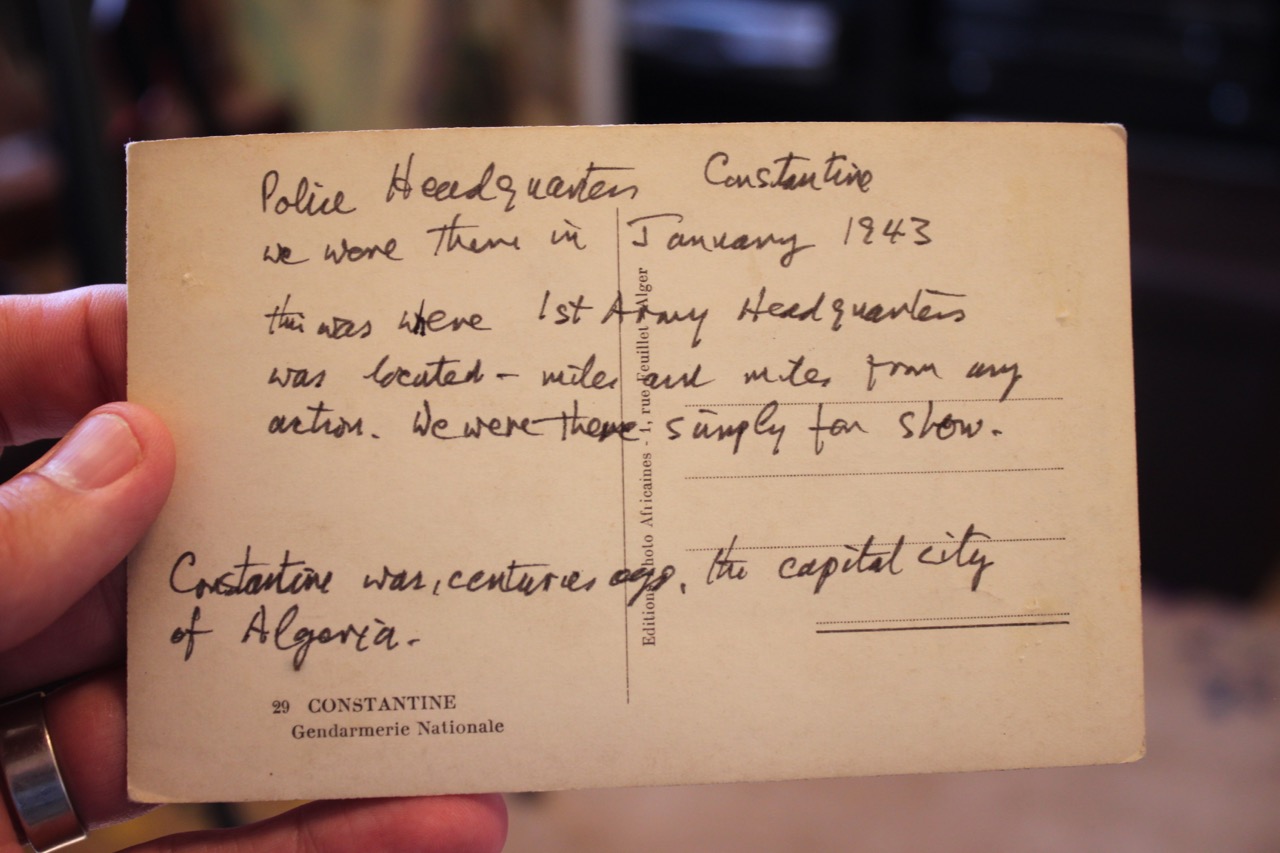 Police Headquarters Constantine
we were there in January 1943
this was where 1st Army Headquarters
was located - miles and miles from any
action. We were there simply for show.
Constantine was, centuries ago, the capital city
of Algeria.
29 CONSTANTINE
Gendarmerie Nationale
Edition Photo Africaines - 1, rue Feuillet - Alger